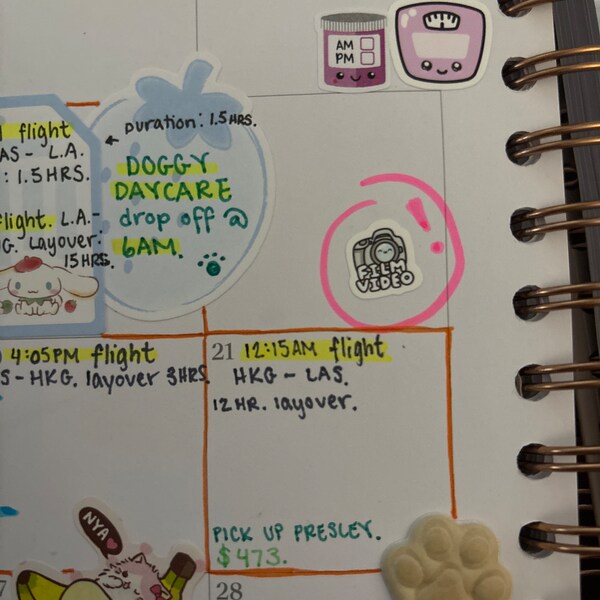 AM
PM
flight
AS - L.A.
: 1.5 HRS.
flight. L.A.-
G. Layover:
15 HRS.
Duration: 1.5 HRS.
DOGGY
DAYCARE
drop off @
6AM.
FILM
VIDEO
4:05PM flight
S - HKG. layover 3HRS
21 12:15AM flight
HKG - LAS.
12 HR. layover.
PICK UP PRESLEY.
$473.
NYA
28